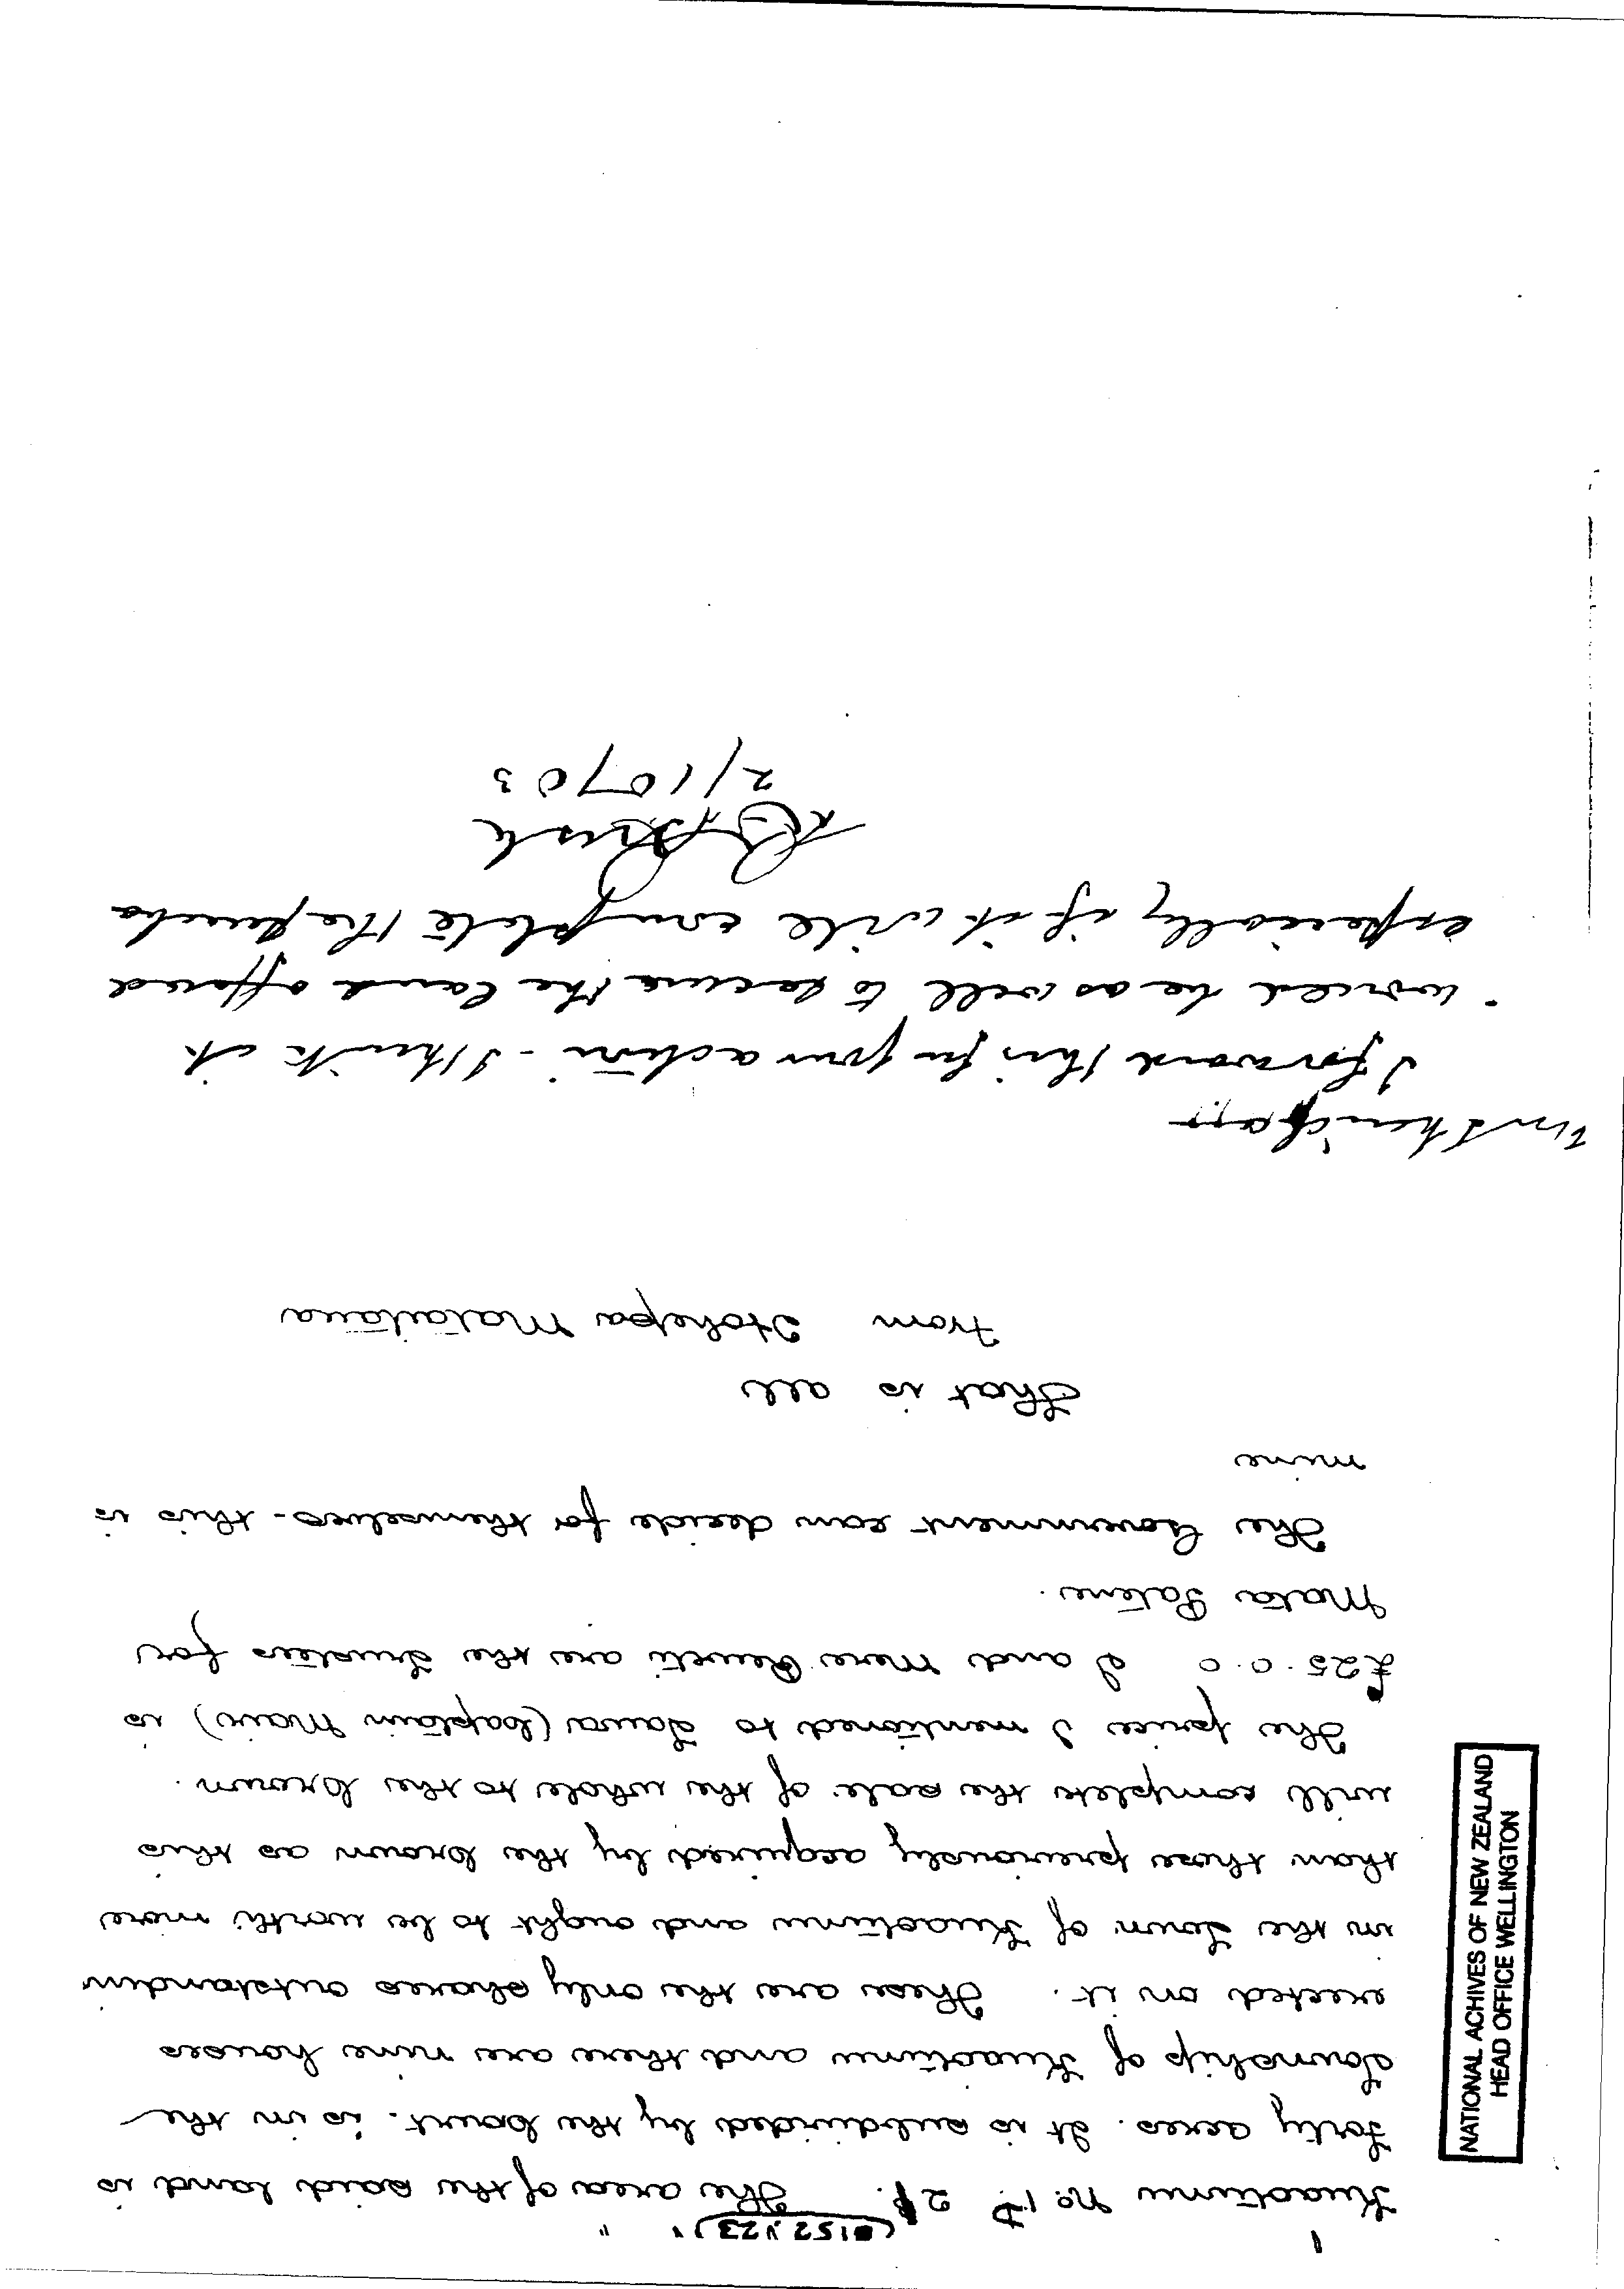 (152 1/23)
Huaotunu No 1 D 2 The area of the said land is
forty acres. It is subdivided by the Court. is in the
Township of Kuaotunu and there are nine houses
erected on it. These are the only shares outstandin
in the Town of Kuaotunu and ought to be worth more
than those previously acquired by the Crown as this
will complete the sale of the whole to the Crown.
The price I mentioned to Tawa (Captain Mair) is
£25.0.0 I and Mere Peneti are the Trustees for
Mata Patene.
The Government can decide for themselves - this is
mine
That is all
From Hohepa Mataitaua
I forward this for your action - I think it
would be as well to secure the land offered
especially if it will complete the purcha
2/10/03
NATIONAL ACHIVES OF NEW ZEALAND
HEAD OFFICE WELLINGTON